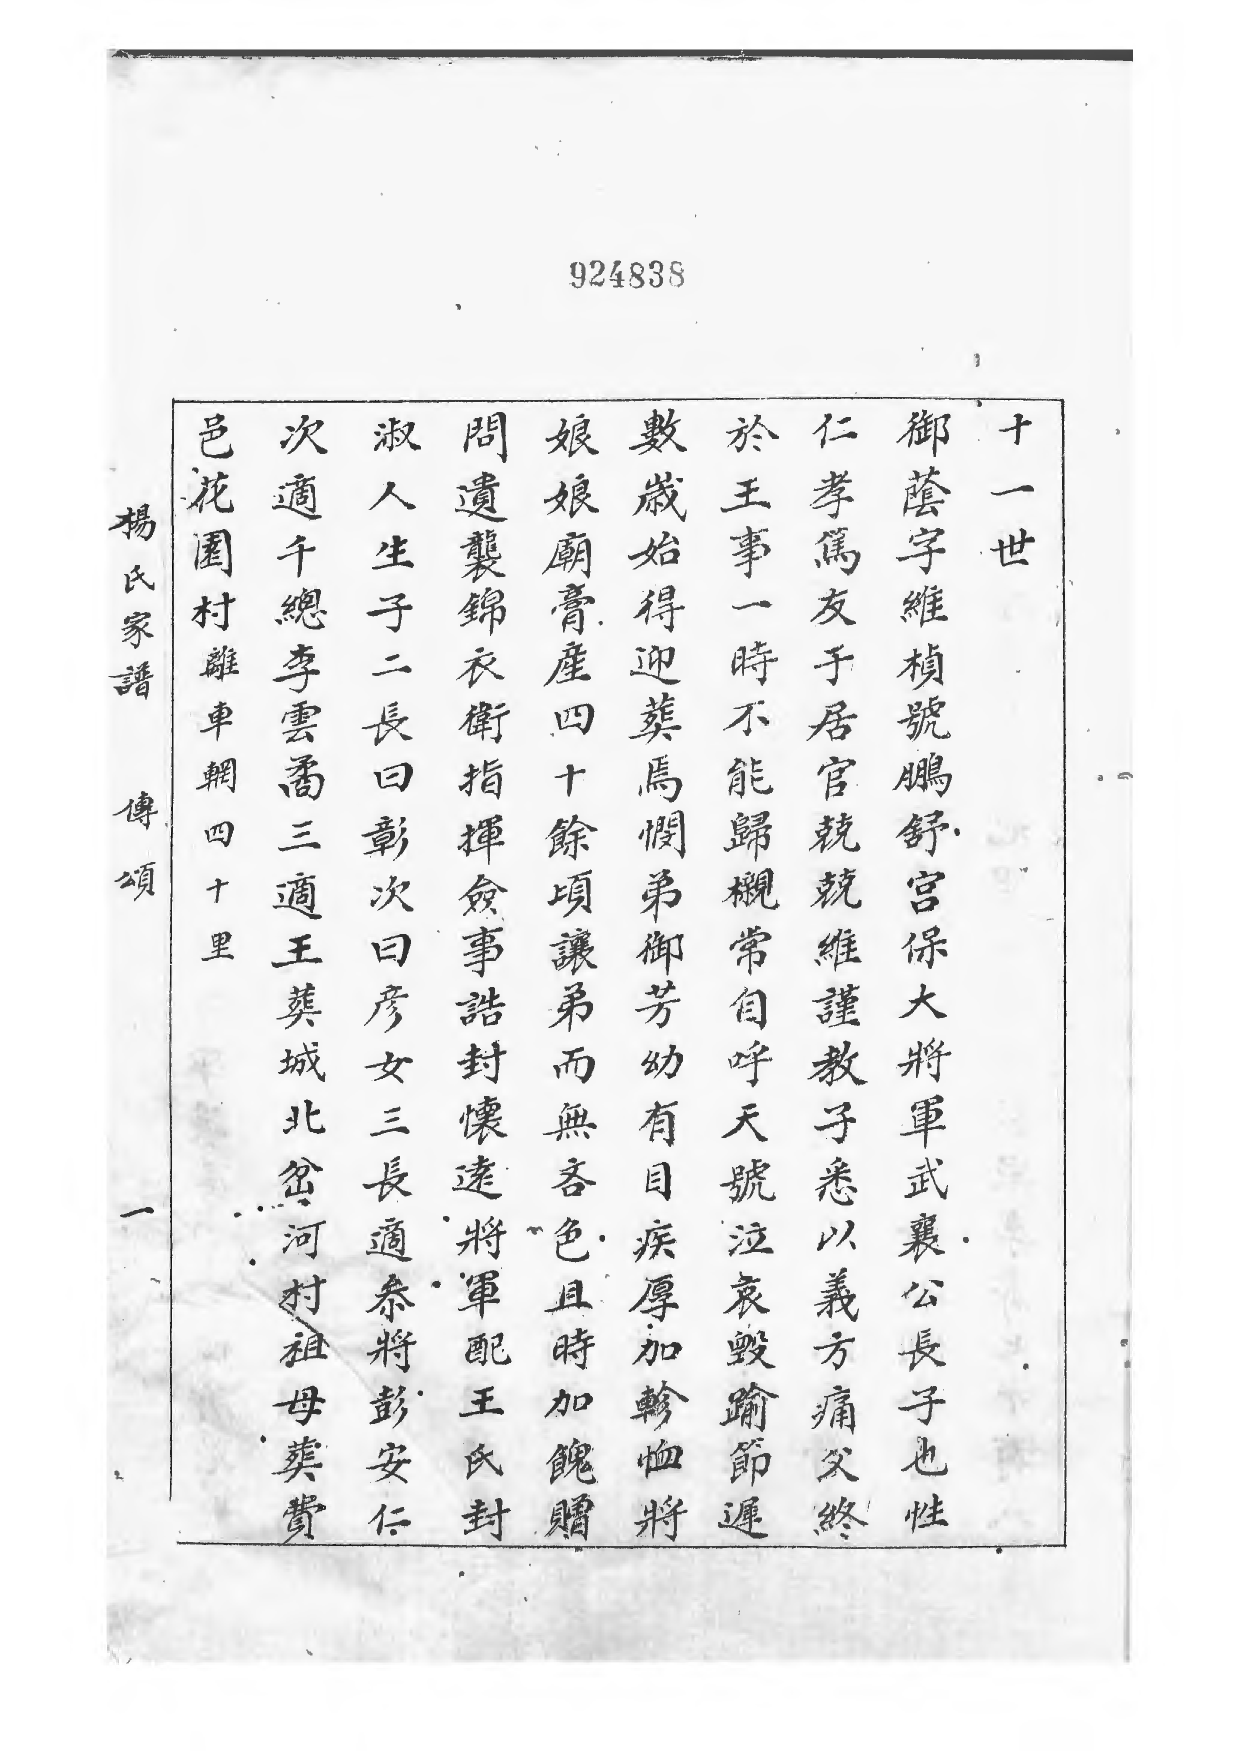 924838
十一世
御蔭字維楨號鵬舒宮保大將軍武襄公長子也性
仁孝篤友于居官兢兢維謹教子悉以義方痛父終
於王事一時不能歸櫬常自呼天號泣哀毀踰節遲
數歲始得迎葬焉憫弟御芳幼有目疾厚加軫恤將
娘娘廟膏產四十餘頃讓弟而無吝色且時加餽贈
問遺襲錦衣衛指揮僉事誥封懷遠將軍配王氏封
淑人生子二長曰彰次曰彥女三長適叅將彭安仁
次適千總李雲矞三適王葬城北岔河村祖母葬費
邑花園村離車輞四十里
楊氏家譜 傳頌 一